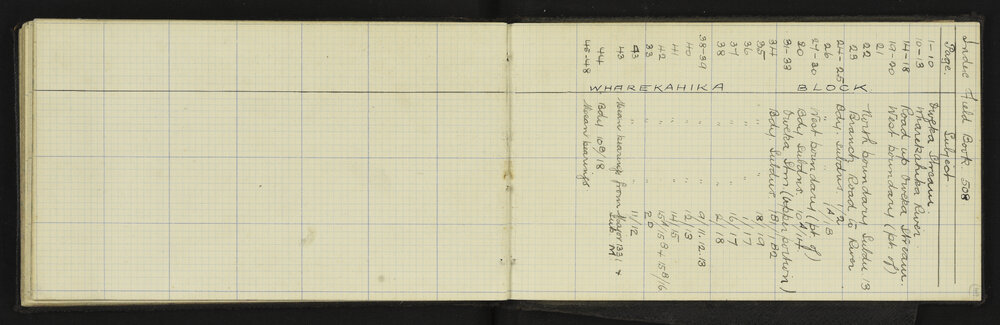 Index Field Book 508
Page. Subject
1-10 Oweka Stream
10-13 Wharekahika River
14-18 Road up Oweka Stream.
19-20 West boundary (pt of)
21
22 North boundary Subdn 13
23 Branch Road to River
24-25 Bdy. Subdns. 1/2
26 " " 1A/B
27-30 West boundary (pt. of)
20 Bdy Subdns 10A/14
31-33 Oweka Stm (upper portion)
34 Bdy Subdns 1B1/1B2
35 " " 18/19
36 " " 1/17
37 " " 16/17
38 " " 2/18
38-39 " " 9/11.12.13
40 " " 12/13
41 " " 14/15
42 " " 15A/15B & 15B/16
33 " " 2D
43 " " 11/12
43 Mean bearings from Major 1331 & Sub M
44 Bdy 10B/18
45-48 Mean bearings
WHAREKAHIKA BLOCK